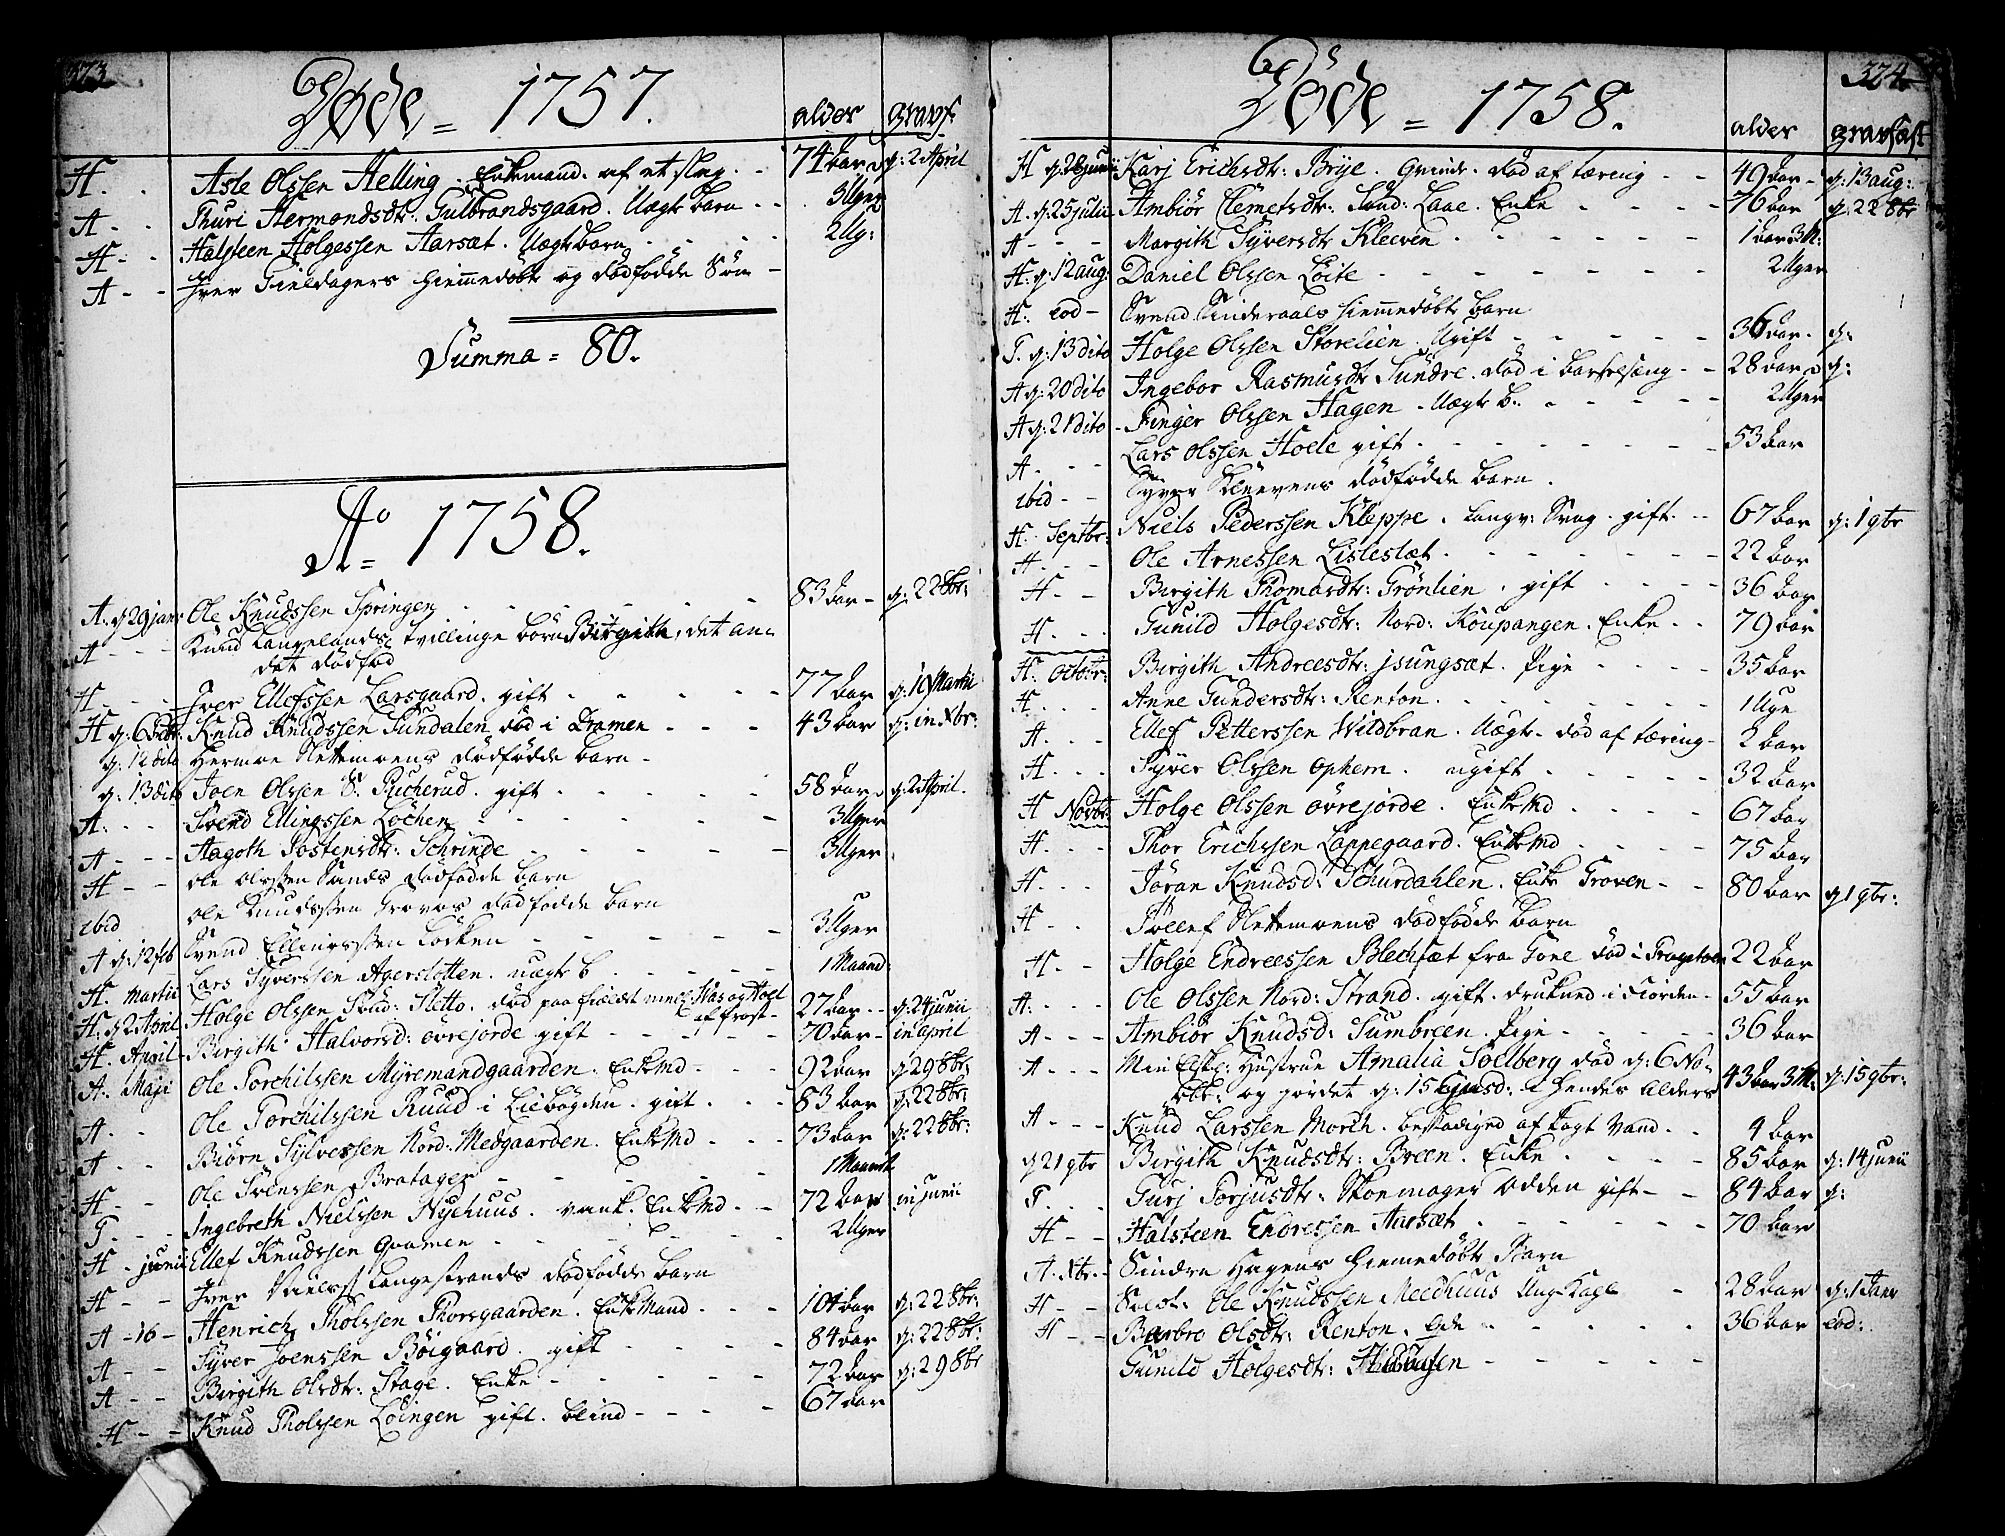 323
Døde = 1757.
alder gravf:
H. Asle Olssen Helling. Enkemand. af et slag. 74 aar g: 2 April
A Thuri Hermandsdtr: Gulbrandsgaard. Uægte barn 3 Uger
H Halsteen Holgessen Aarsæt. Uægte barn 2 Ug:
A Iver Fieldagers hiemedøbte og dødfødde Søn
Summa = 80.
Ao 1758.
A. g 29 jan: Ole Knudssen Springen 83 aar g: 22 8br:
A Knud Langelands tvillinge børn Birgith, det an=
det dødfød
H Iver Ellefssen Larsgaard. gift 77 aar Martii
H g: 6 Knud Knudssen Sundalen død i Dramen 43 aar g: in Xbr:
g: 12 dito Hermoe Slettemoens dødfødde barn
g: 13 dito Joen Olssen S. Rucherud. gift 58 aar g: 2 April.
A. Svend Ellingssen Løchen 3 Uger
A Aagoth Jostensdtr: Schrinde 3 Uger
H Ole Olssøn Sands dødfødde barn
ibid Ole Knudssøn Grovos dødfødde barn
A g: 12 feb Svend Ellingssøn Løcken 3 Uger
H. Martii Lars Syverssen Agersletten. uægte b 1 Maaned
H. g 2 April Holge Olssen Sønd: Sletto. død paa fieldet mell: Has og Hoel 27 aar g: 24 junii
af frost
H. April Birgith Halvorsd: øvrejorde gift 70 aar in April
A. Maji Ole Torchilssen Myremandgaarden. Enkemd 92 aar g 29 8br:
A. Ole Torchilssen Ruud i Liebøgden. gift 83 aar g: 22 8br:
A Biørn Sylvessen Nord: Medgaarden. Enkemd 73 aar g: 22 8br:
H Ole Svenssen Bratager 1 Maaned
T. Ingebreth Nielssen Nyehuus. vank. Enkemd 72 aar in junii
H junii Ellef Knudssen Qvamen 2 Uger
H Iver Langestrands dødfødde barn
A 16 Henrich Tholssen Thorsgaarden. Enkemand 101 aar g: 22 8br:
A Syver Joenssen Bøigaard. gift 84 aar g: 22 8br:
A Birgith Olsdtr: Stage. Enke 72 aar g: 29 8br
H Knud Tholssen Løingen gift. blind 67 aar
324
Døde = 1758.
alder gravfæst
H g 28 junii Karj Erichsdtr: Brye. Qvinde. død af tæring 49 aar g: 13 aug:
A g: 25 julii Ambiør Clemetsdtr: Sønd: Laae. Enke 76 aar g: 22 8br
A Margith Syversdtr Kleeven 1 aar 3 M:
H. g: 12 aug: Daniel Olssen Løite 2 Uger
H. eod Svend Sinderaals hiemmedøbte barn
T. g: 13 dito Holge Olssen Storelien. Ugift 36 aar. g:
A g: 20 dito Ingebor Rasmusdtr Sundre. død i barselseng 28 aar g:
A g: 21 dito Finger Olssen Hagen. Uægte b. 2 Uger
A Lars Olssen Hoele gift 53 aar
ibid Syver Kleevens dødfødde barn.
H Septbr: Niels Pederssen Kleppe. langv: Svag. gift 67 aar g: 1 9br
A Ole Arnessen Lislestæt 22 aar
H Birgith Thomasdtr: Grønlien. gift 36 aar
H. Gunild Holgesdtr: Nord: Koupangen. Enke 79 aar
H. Octobr: Birgith Andreesdtr: jsungsæt. Pige 35 aar
H. Anne Gundersdtr: Renton. 1 Uge
A. Ellef Petterssen Wildbran. Uægte. død af tæring 2 aar
H. Syver Olssen Ophem. ugift 32 aar
H Novbr: Holge Olssen øvrejorde. Enkemd 67 aar
H. Thor Erichssen Lappegaard. Enkemd 75 aar
H. Jøran Knudsd: Schurdahlen. Enke Groven 80 aar g 1 9br:
H Tøllef Slettemoens dødfødde barn
H. Holge Endreessen Blechsæt fra Gone død i 22 aar
A. Ole Olssen Nord: Strand. gift. druknet i fiorden 55 aar
A Ambiør Knudsd: Sumbreen. Pige 36 aar
A Min Elsk: Hustrue Amalia Soelberg død g: 6 No=
vbr: og jordet g: 15 ejusd: Hendes Alders 43 aar 3 M: g: 15 9br:
A Knud Larssen Morch. beskadiged af kogt vand 4 aar
g 21 9br Birgith Knudsdtr: Breen. Enke 85 aar g: 14 junii
T. Gurj Torjusdtr: Skoemager Odden gift 84 aar g:
H Halsteen Endressen Aarsæt 70 aar
A. Xbr. Sindre Hagens hiemmedøbte Barn
H Ole Knudssen Meedhuus Ung Karl 28 aar g: 1 Janr
H Barbro Olsdtr: Renton. 36 aar eod:
Gunild Holgesdtr: